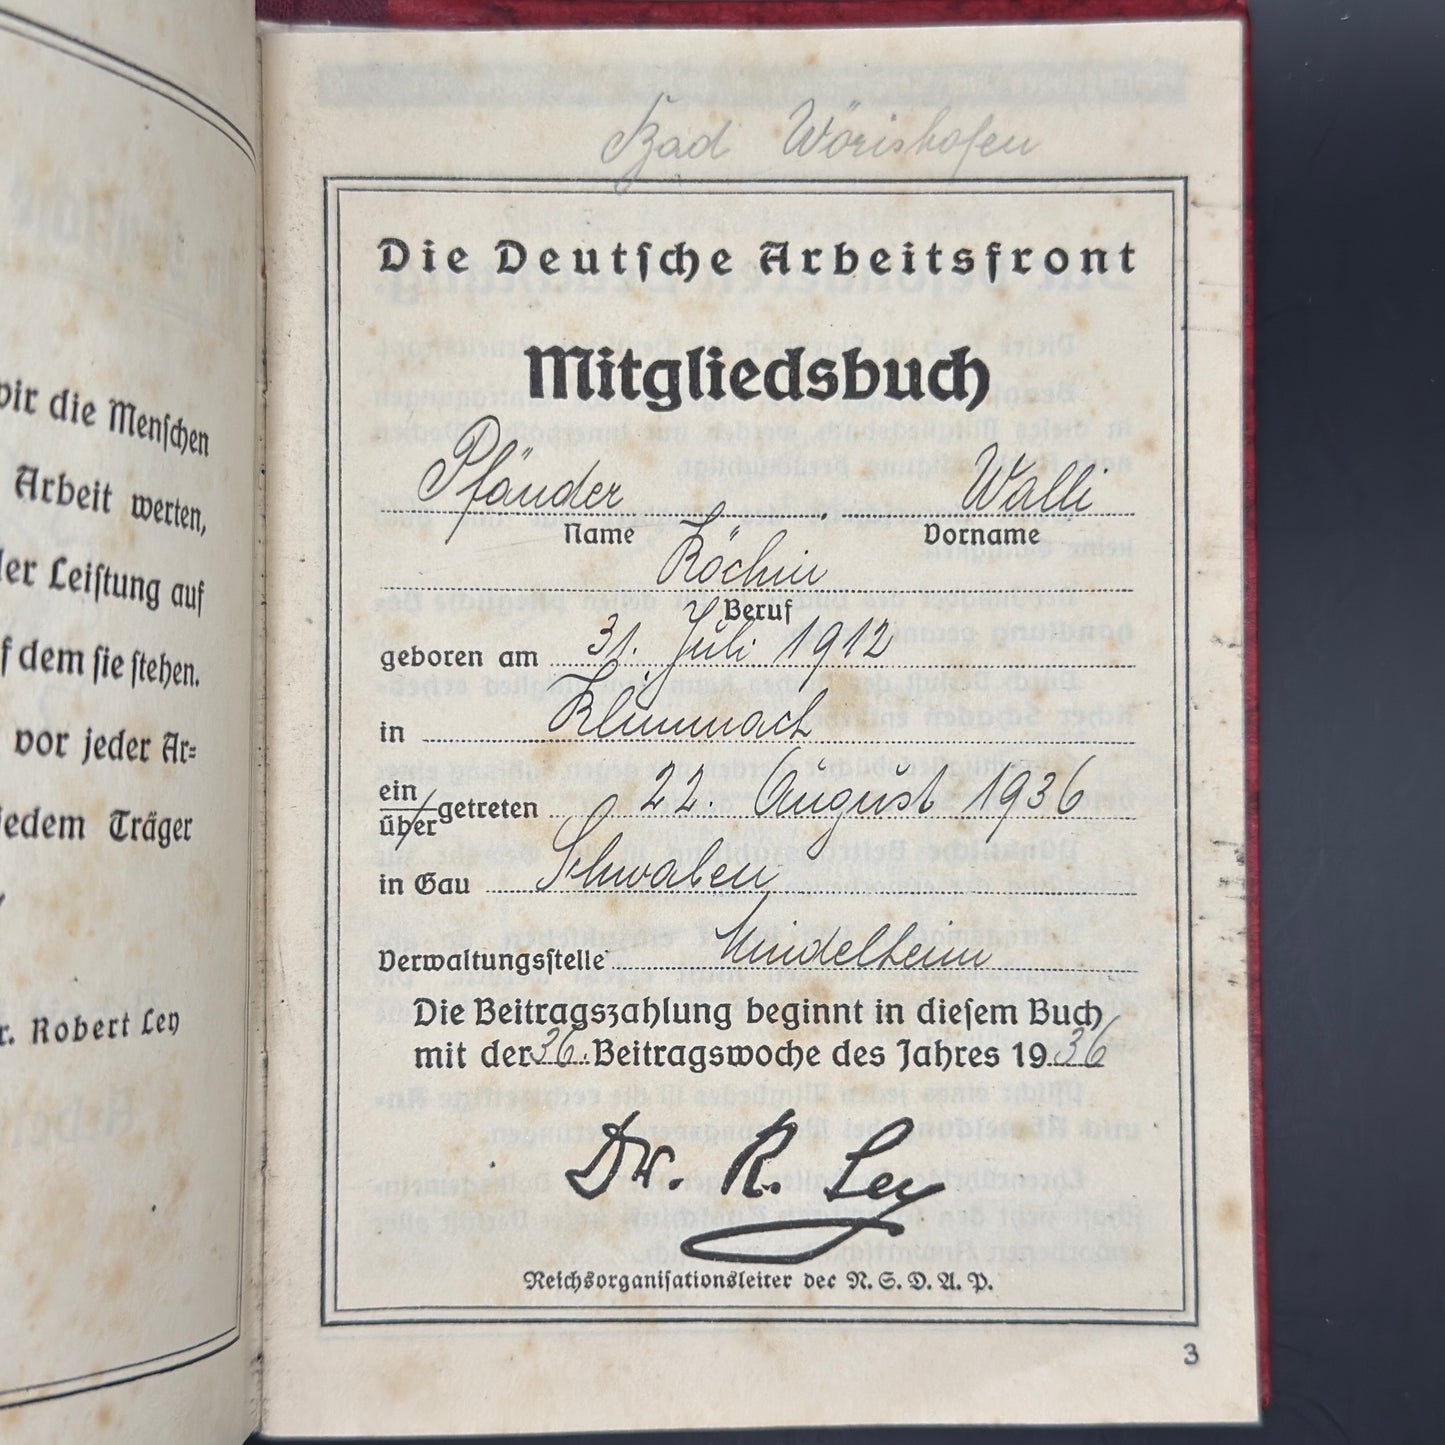 vir die Menschen
Arbeit werten,
der Leistung auf
f dem sie stehen.
vor jeder Ar=
jedem Träger
r. Robert Ley
Bad Wörishofen
Die Deutsche Arbeitsfront
Mitgliedsbuch
Pfänder Walli
Name Vorname
Köchin
Beruf
geboren am 31. Juli 1912
in Klimmach
ein/über getreten 22. August 1936
in Gau Schwaben
Verwaltungsstelle Mindelheim
Die Beitragszahlung beginnt in diesem Buch
mit der 36. Beitragswoche des Jahres 1936
Dr. R. Ley
Reichsorganisationsleiter der N.S.D.A.P.
3